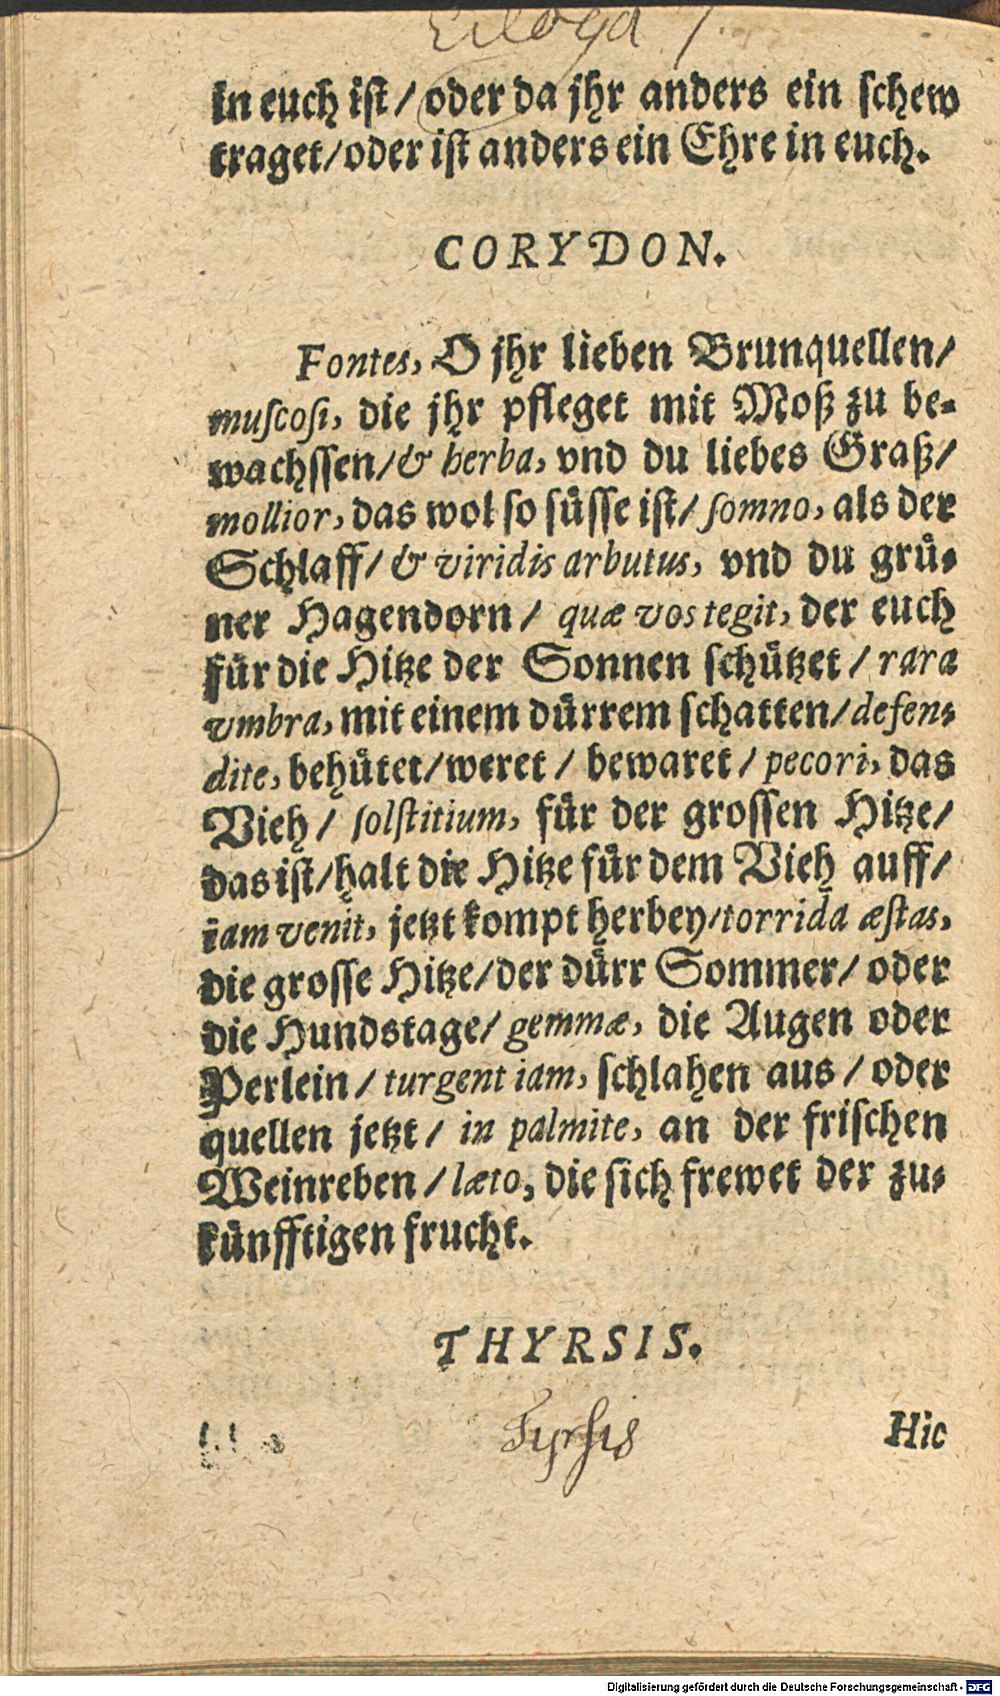 Ecloga 7
in euch ist/ oder da jhr anders ein schew
traget/ oder ist anders ein Ehre in euch.
CORYDON.
Fontes, O jhr lieben Brunquellen/
muſcoſi, die jhr pfleget mit Moß zu be-
wachssen/ & herba, vnd du liebes Graß/
mollior, das wol so süsse ist/ ſomno, als der
Schlaff/ & viridis arbutus, vnd du grü-
ner Hagendorn/ quæ vos tegit, der euch
für die Hitze der Sonnen schützet/ rara
vmbra, mit einem dürrem schatten/ defen-
dite, behütet/ weret/ bewaret/ pecori, das
Vieh/ ſolſtitium, für der grossen Hitze/
das ist/ halt die Hitze für dem Vieh auff/
iam venit, jetzt kompt herbey/ torrida æſtas,
die grosse Hitze/ der dürr Sommer/ oder
die Hundstage/ gemmæ, die Augen oder
Perlein/ turgent iam, schlahen aus/ oder
quellen jetzt/ in palmite, an der frischen
Weinreben/ læto, die sich frewet der zu-
künfftigen frucht.
THYRSIS.
Tyrsis
Hic
Digitalisierung gefördert durch die Deutsche Forschungsgemeinschaft - DFG